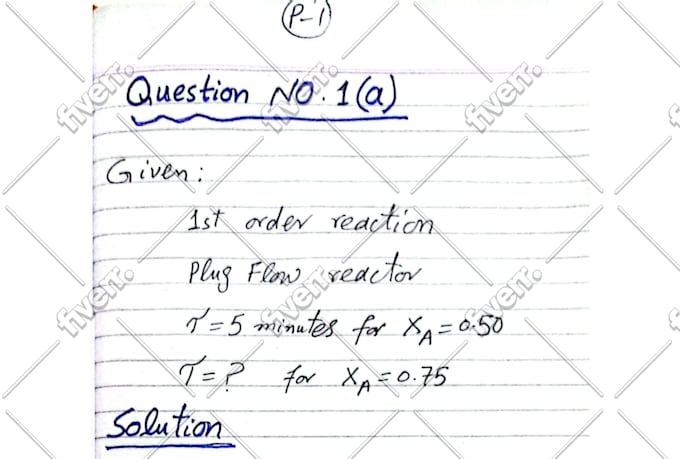 P-1
Question NO. 1(a)
Given:
1st order reaction
Plug Flow reactor
τ=5 minutes for X_A=0.50
τ=? for X_A=0.75
Solution
fiverr.
fiverr.
fiverr.
fiverr.
fiverr.